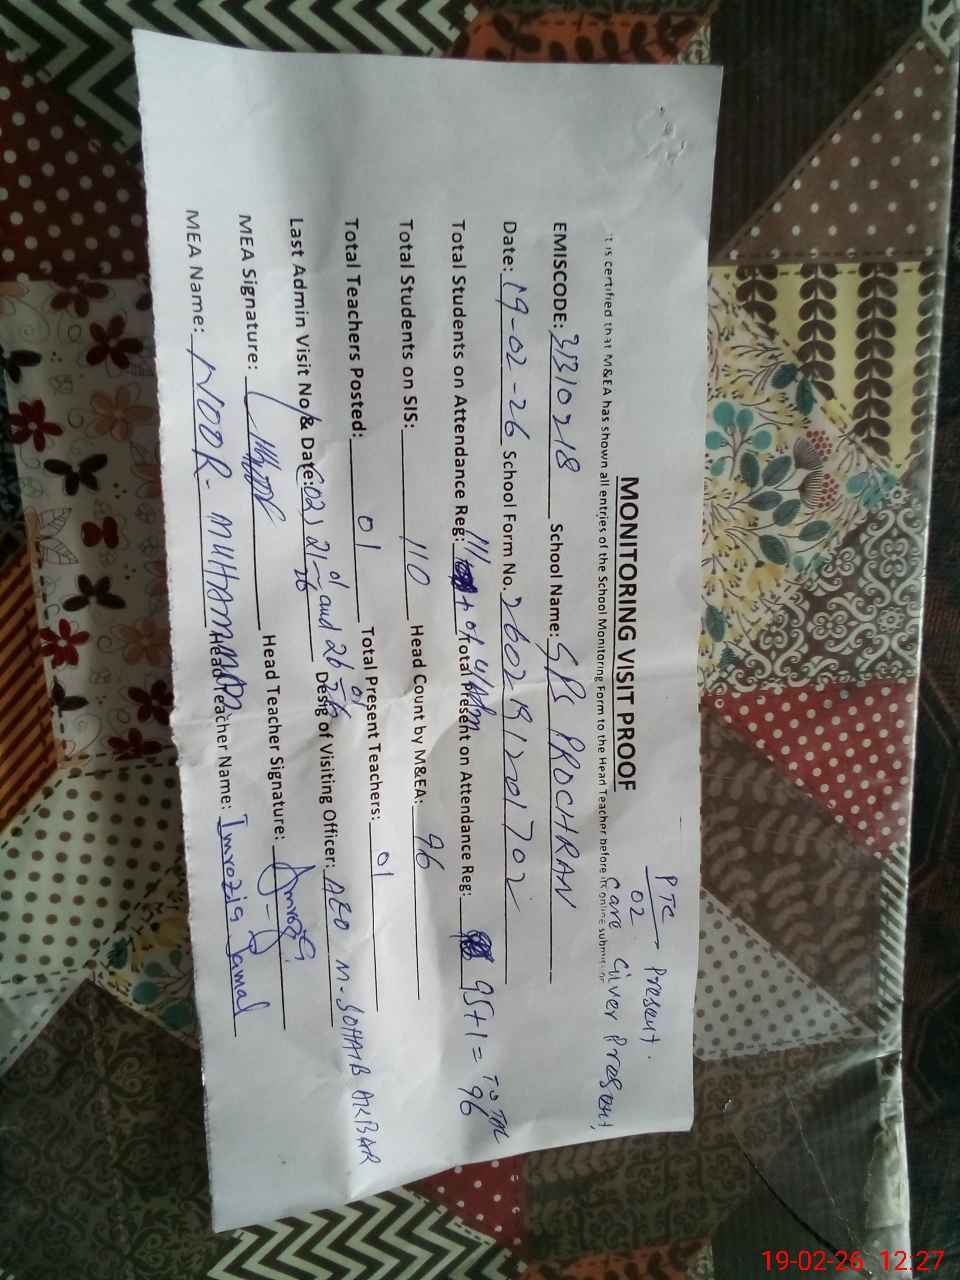 PTC Present.
02 Care Giver Present
MONITORING VISIT PROOF
It is certified that M&EA has shown all entries of the School Monitoring Form to the Head Teacher before its online submission
EMISCODE: 31310218 School Name: GPS PROCHRAN
Date: 19-02-26 School Form No. 2602191201702
Total Students on Attendance Reg: 111 + 01 Adm Total Present on Attendance Reg: 95+1 = TOTAL 96
Total Students on SIS: 110 Head Count by M&EA: 96
Total Teachers Posted: 01 Total Present Teachers: 01
Last Admin Visit No & Date: 02, 21-01-26 and 26-01-26 Desig of Visiting Officer: AEO M-SOHAIB AKBAR
MEA Signature: Head Teacher Signature:
MEA Name: NOOR-MUHAMMAD. Head Teacher Name: Imrozia Jamal
19-02-26 12:27